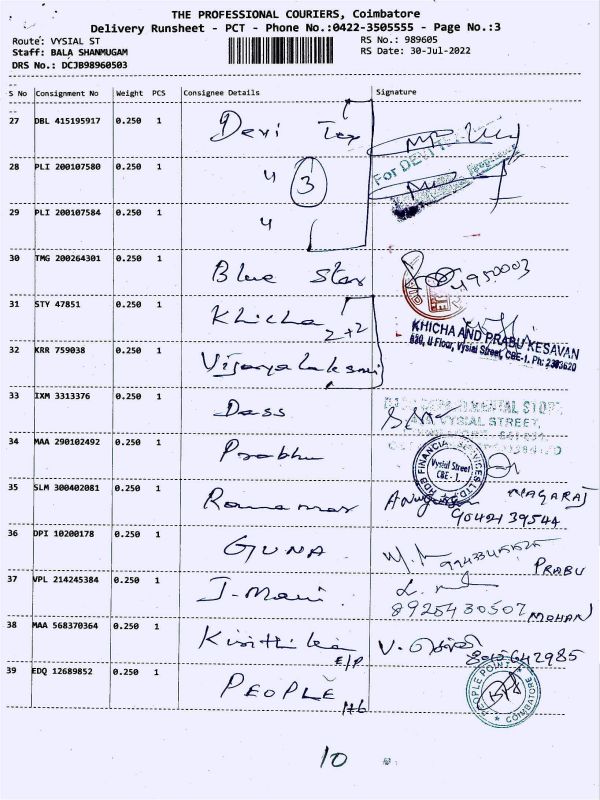 THE PROFESSIONAL COURIERS, Coimbatore
Delivery Runsheet - PCT - Phone No.:0422-3505555 - Page No.:3
Route: VYSIAL ST RS No.: 989605
Staff: BALA SHANMUGAM RS Date: 30-Jul-2022
DRS No.: DCJB98960503
S No Consignment No Weight PCS Consignee Details Signature
27 DBL 415195917 0.250 1 Devi Tex
For DEVI
28 PLI 200107580 0.250 1 " 3
29 PLI 200107584 0.250 1 "
30 TMG 200264301 0.250 1 Blue Star 4950003
31 STY 47851 0.250 1 Khicha 2+2
KHICHA AND PRABU KESAVAN
620, II Floor, Vysial Street, CBE-1. Ph: 2393620
32 KRR 759038 0.250 1 Vijayalaksmi
33 IXM 3313376 0.250 1 Dass
VYSIAL STREET,
34 MAA 290102492 0.250 1 Prabhu
FINANCIAL SERVICES
Vysial Street
CBE - 1.
35 SLM 300402081 0.250 1 NAGARAJ
9042139544
36 DPI 10200178 0.250 1 GUNA
PRABU
37 VPL 214245384 0.250 1 J-Mani
8925430507 MOHAN
38 MAA 568370364 0.250 1 E/P
39 EDQ 12689852 0.250 1 PEOPLE
PEOPLE POINT * COIMBATORE *
10